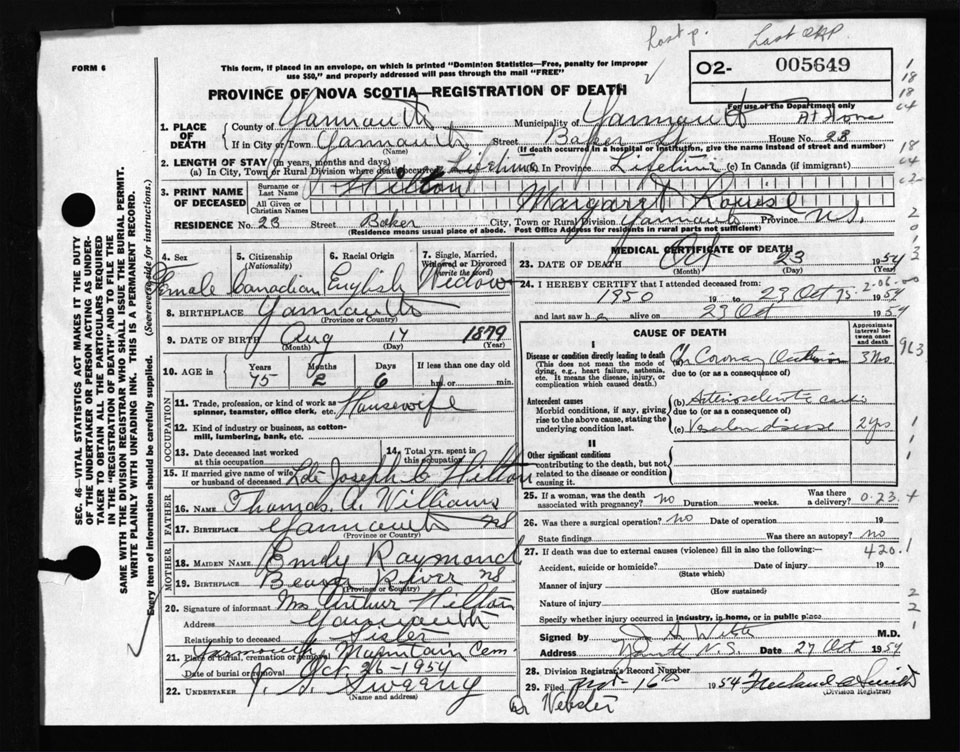 Last p. Last OKP.
FORM 6
This form, if placed in an envelope, on which is printed "Dominion Statistics—Free, penalty for improper
use $50," and properly addressed will pass through the mail "FREE"
O2- 005649
PROVINCE OF NOVA SCOTIA—REGISTRATION OF DEATH
For use of the Department only
1. PLACE OF DEATH
County of Yarmouth Municipality of Yarmouth At Home
If in City or Town Yarmouth Street Baker St House No. 23
(Name) (If death occurred in a hospital or institution, give the name instead of street and number)
2. LENGTH OF STAY (in years, months and days)
(a) In City, Town or Rural Division where death occurred Lifetime (b) In Province Lifetime (c) In Canada (if immigrant)
3. PRINT NAME OF DECEASED
Surname or Last Name Hilton
All Given or Christian Names Margaret Louise
RESIDENCE No. 23 Street Baker City, Town or Rural Division Yarmouth Province N.S.
(Residence means usual place of abode. Post Office Address for residents in rural parts not sufficient)
SEC. 46—VITAL STATISTICS ACT MAKES IT THE DUTY
OF THE UNDERTAKER OR PERSON ACTING AS UNDER-
TAKER TO OBTAIN ALL THE PARTICULARS REQUIRED
IN THE "REGISTRATION OF DEATH" AND TO FILE THE
SAME WITH THE DIVISION REGISTRAR WHO SHALL ISSUE THE BURIAL PERMIT.
WRITE PLAINLY WITH UNFADING INK. THIS IS A PERMANENT RECORD.
Every item of information should be carefully supplied. (See reverse side for instructions.)
4. Sex Female
5. Citizenship (Nationality) Canadian
6. Racial Origin English
7. Single, Married, Widowed or Divorced (write the word) Widow
8. BIRTHPLACE Yarmouth
(Province or Country)
9. DATE OF BIRTH Aug 17 1879
(Month) (Day) (Year)
10. AGE in Years 75 Months 2 Days 6 If less than one day old
hrs. or min.
OCCUPATION
11. Trade, profession, or kind of work as
spinner, teamster, office clerk, etc. Housewife
12. Kind of industry or business, as cotton-
mill, lumbering, bank, etc.
13. Date deceased last worked
at this occupation
14. Total yrs. spent in
this occupation
15. If married give name of wife
or husband of deceased Late Joseph C Hilton
FATHER
16. Name Thomas A. Williams
17. Birthplace Yarmouth NS
(Province or Country)
MOTHER
18. MAIDEN NAME Emily Raymond
19. BIRTHPLACE Beaver River NS
(Province or Country)
20. Signature of informant Mrs Arthur Hilton
Address Yarmouth
Relationship to deceased Sister
21. Place of burial, cremation or removal Yarmouth Mountain Cem
Date of burial or removal Oct. 26-1954
22. UNDERTAKER Sweeny
(Name and address)
MEDICAL CERTIFICATE OF DEATH
23. DATE OF DEATH Oct 23 1954
(Month) (Day) (Year)
24. I HEREBY CERTIFY that I attended deceased from:
1950 19 to 23 Oct 1954
75-2-06-00
and last saw h alive on 23 Oct 1954
CAUSE OF DEATH
Approximate interval between onset and death
I
Disease or condition directly leading to death
(This does not mean the mode of
dying, e.g., heart failure, asthenia,
etc. It means the disease, injury, or
complication which caused death.)
(a) Coronary Occlusion 3 mo
due to (or as a consequence of)
Antecedent causes
Morbid conditions, if any, giving
rise to the above cause, stating the
underlying condition last.
(b) Arteriosclerotic cardio
due to (or as a consequence of)
(c) Vascular disease 2 yrs
II
Other significant conditions
contributing to the death, but not
related to the disease or condition
causing it.
25. If a woman, was the death
associated with pregnancy? no Duration weeks. Was there a delivery? 0.23.4
26. Was there a surgical operation? no Date of operation 19
State findings Was there an autopsy? no
27. If death was due to external causes (violence) fill in also the following:— 420.1
Accident, suicide or homicide? Date of injury 19
(State which)
Manner of injury
(How sustained)
Nature of injury
Specify whether injury occurred in industry, in home, or in public place
Signed by M.D.
N.S. Date 27 Oct 1954
28. Division Registrar's Record Number
29. Filed 16th 1954 Smith
(Division Registrar)
Dr Webster